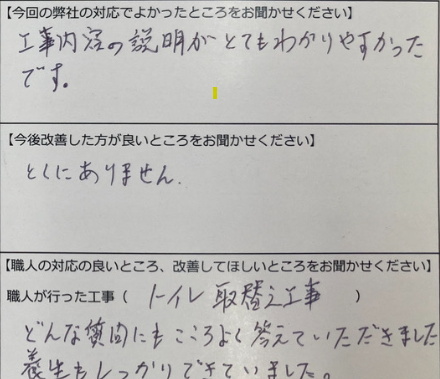 【今回の弊社の対応でよかったところをお聞かせください】
工事内容の説明がとてもわかりやすかった
です。
【今後改善した方が良いところをお聞かせください】
とくにありません.
【職人の対応の良いところ、改善してほしいところをお聞かせください】
職人が行った工事( トイレ 取替え工事 )
どんな質問にもこころよく答えていただきました
養生もしっかりできていました。